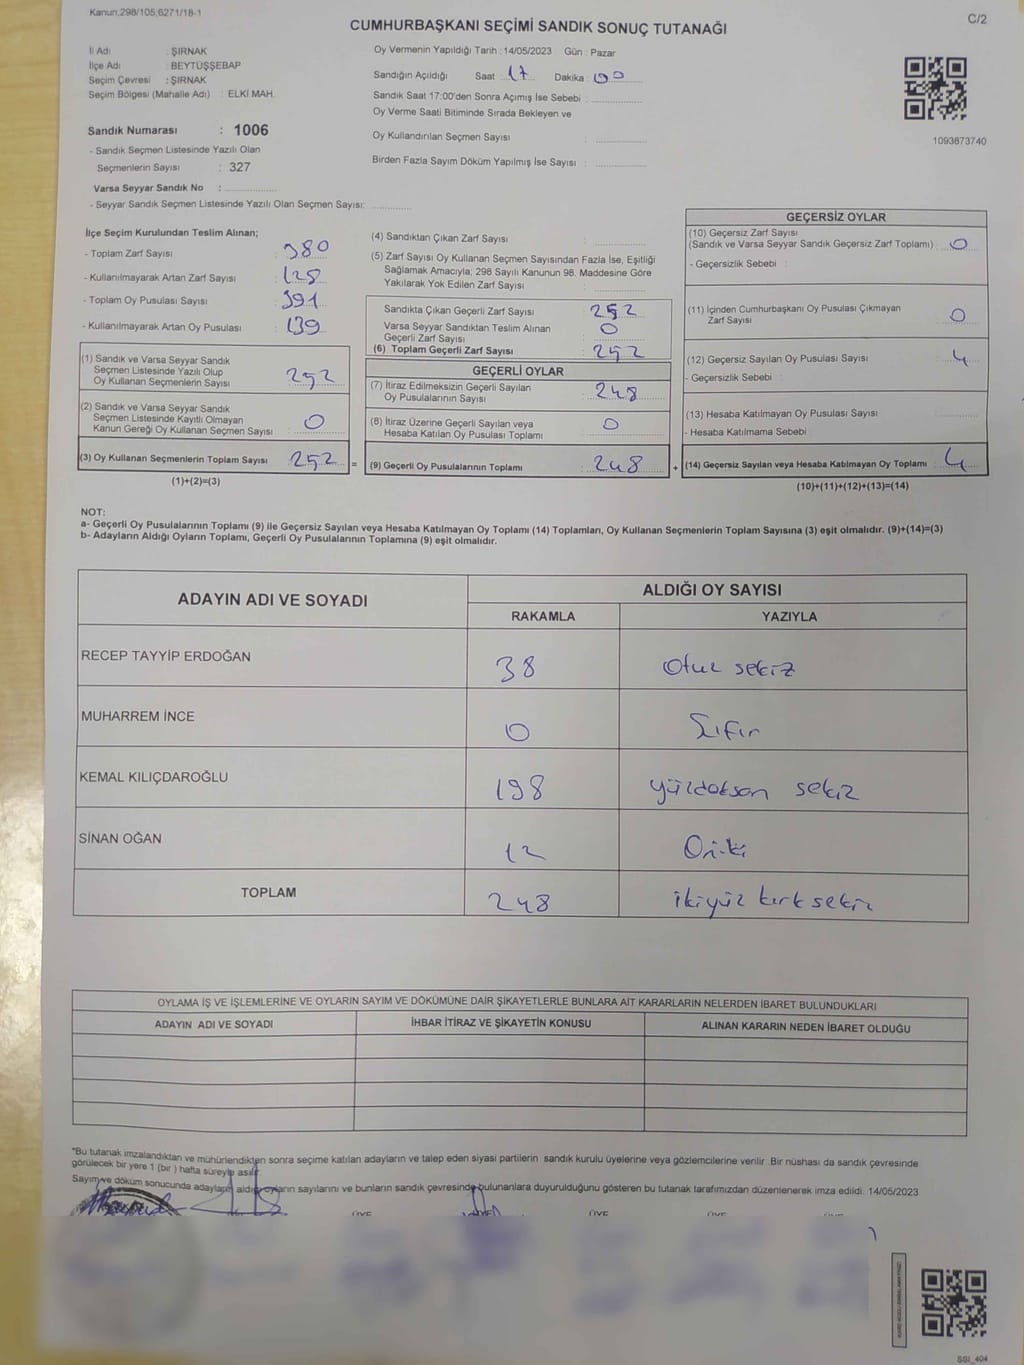 Kanun,298/105,6271/18-1
C/2
CUMHURBAŞKANI SEÇİMİ SANDIK SONUÇ TUTANAĞI
İl Adı : ŞIRNAK
İlçe Adı : BEYTÜŞŞEBAP
Seçim Çevresi : ŞIRNAK
Seçim Bölgesi (Mahalle Adı) : ELKİ MAH.
Sandık Numarası : 1006
- Sandık Seçmen Listesinde Yazılı Olan
Seçmenlerin Sayısı : 327
Varsa Seyyar Sandık No :
- Seyyar Sandık Seçmen Listesinde Yazılı Olan Seçmen Sayısı:
Oy Vermenin Yapıldığı Tarih : 14/05/2023 Gün : Pazar
Sandığın Açıldığı Saat : 17 Dakika : 00
Sandık Saat 17:00'den Sonra Açımış İse Sebebi :
Oy Verme Saati Bitiminde Sırada Bekleyen ve
Oy Kullandırılan Seçmen Sayısı :
Birden Fazla Sayım Döküm Yapılmış İse Sayısı :
1093873740
İlçe Seçim Kurulundan Teslim Alınan;
- Toplam Zarf Sayısı : 380
- Kullanılmayarak Artan Zarf Sayısı : 128
- Toplam Oy Pusulası Sayısı : 391
- Kullanılmayarak Artan Oy Pusulası : 139
(1) Sandık ve Varsa Seyyar Sandık
Seçmen Listesinde Yazılı Olup
Oy Kullanan Seçmenlerin Sayısı : 252
(2) Sandık ve Varsa Seyyar Sandık
Seçmen Listesinde Kayıtlı Olmayan
Kanun Gereği Oy Kullanan Seçmen Sayısı : 0
(3) Oy Kullanan Seçmenlerin Toplam Sayısı : 252 =
(1)+(2)=(3)
(4) Sandıktan Çıkan Zarf Sayısı :
(5) Zarf Sayısı Oy Kullanan Seçmen Sayısından Fazla İse, Eşitliği
Sağlamak Amacıyla; 298 Sayılı Kanunun 98. Maddesine Göre
Yakılarak Yok Edilen Zarf Sayısı :
Sandıkta Çıkan Geçerli Zarf Sayısı : 252
Varsa Seyyar Sandıktan Teslim Alınan
Geçerli Zarf Sayısı : 0
(6) Toplam Geçerli Zarf Sayısı : 252
GEÇERLİ OYLAR
(7) İtiraz Edilmeksizin Geçerli Sayılan
Oy Pusulalarının Sayısı : 248
(8) İtiraz Üzerine Geçerli Sayılan veya
Hesaba Katılan Oy Pusulası Toplamı : 0
(9) Geçerli Oy Pusulalarının Toplamı : 248 +
GEÇERSİZ OYLAR
(10) Geçersiz Zarf Sayısı
(Sandık ve Varsa Seyyar Sandık Geçersiz Zarf Toplamı) : 0
- Geçersizlik Sebebi :
(11) İçinden Cumhurbaşkanı Oy Pusulası Çıkmayan
Zarf Sayısı : 0
(12) Geçersiz Sayılan Oy Pusulası Sayısı : 4
- Geçersizlik Sebebi :
(13) Hesaba Katılmayan Oy Pusulası Sayısı :
- Hesaba Katılmama Sebebi :
(14) Geçersiz Sayılan veya Hesaba Katılmayan Oy Toplamı : 4
(10)+(11)+(12)+(13)=(14)
NOT:
a- Geçerli Oy Pusulalarının Toplamı (9) ile Geçersiz Sayılan veya Hesaba Katılmayan Oy Toplamı (14) Toplamları, Oy Kullanan Seçmenlerin Toplam Sayısına (3) eşit olmalıdır. (9)+(14)=(3)
b- Adayların Aldığı Oyların Toplamı, Geçerli Oy Pusulalarının Toplamına (9) eşit olmalıdır.
ADAYIN ADI VE SOYADI
ALDIĞI OY SAYISI
RAKAMLA YAZIYLA
RECEP TAYYİP ERDOĞAN 38 Otuz sekiz
MUHARREM İNCE 0 Sıfır
KEMAL KILIÇDAROĞLU 198 yüzdoksan sekiz
SİNAN OĞAN 12 Oniki
TOPLAM 248 ikiyüz kırk sekiz
OYLAMA İŞ VE İŞLEMLERİNE VE OYLARIN SAYIM VE DÖKÜMÜNE DAİR ŞİKAYETLERLE BUNLARA AİT KARARLARIN NELERDEN İBARET BULUNDUKLARI
ADAYIN ADI VE SOYADI İHBAR İTİRAZ VE ŞİKAYETİN KONUSU ALINAN KARARIN NEDEN İBARET OLDUĞU
*Bu tutanak imzalandıktan ve mühürlendikten sonra seçime katılan adayların ve talep eden siyasi partilerin sandık kurulu üyelerine veya gözlemcilerine verilir. Bir nüshası da sandık çevresinde
görülecek bir yere 1 (bir ) hafta süreyle asılır.
Sayım ve döküm sonucunda adayların aldığı oyların sayılarını ve bunların sandık çevresinde bulunanlara duyurulduğunu gösteren bu tutanak tarafımızdan düzenlenerek imza edildi. 14/05/2023
ÜYE ÜYE ÜYE ÜYE
SSI_404